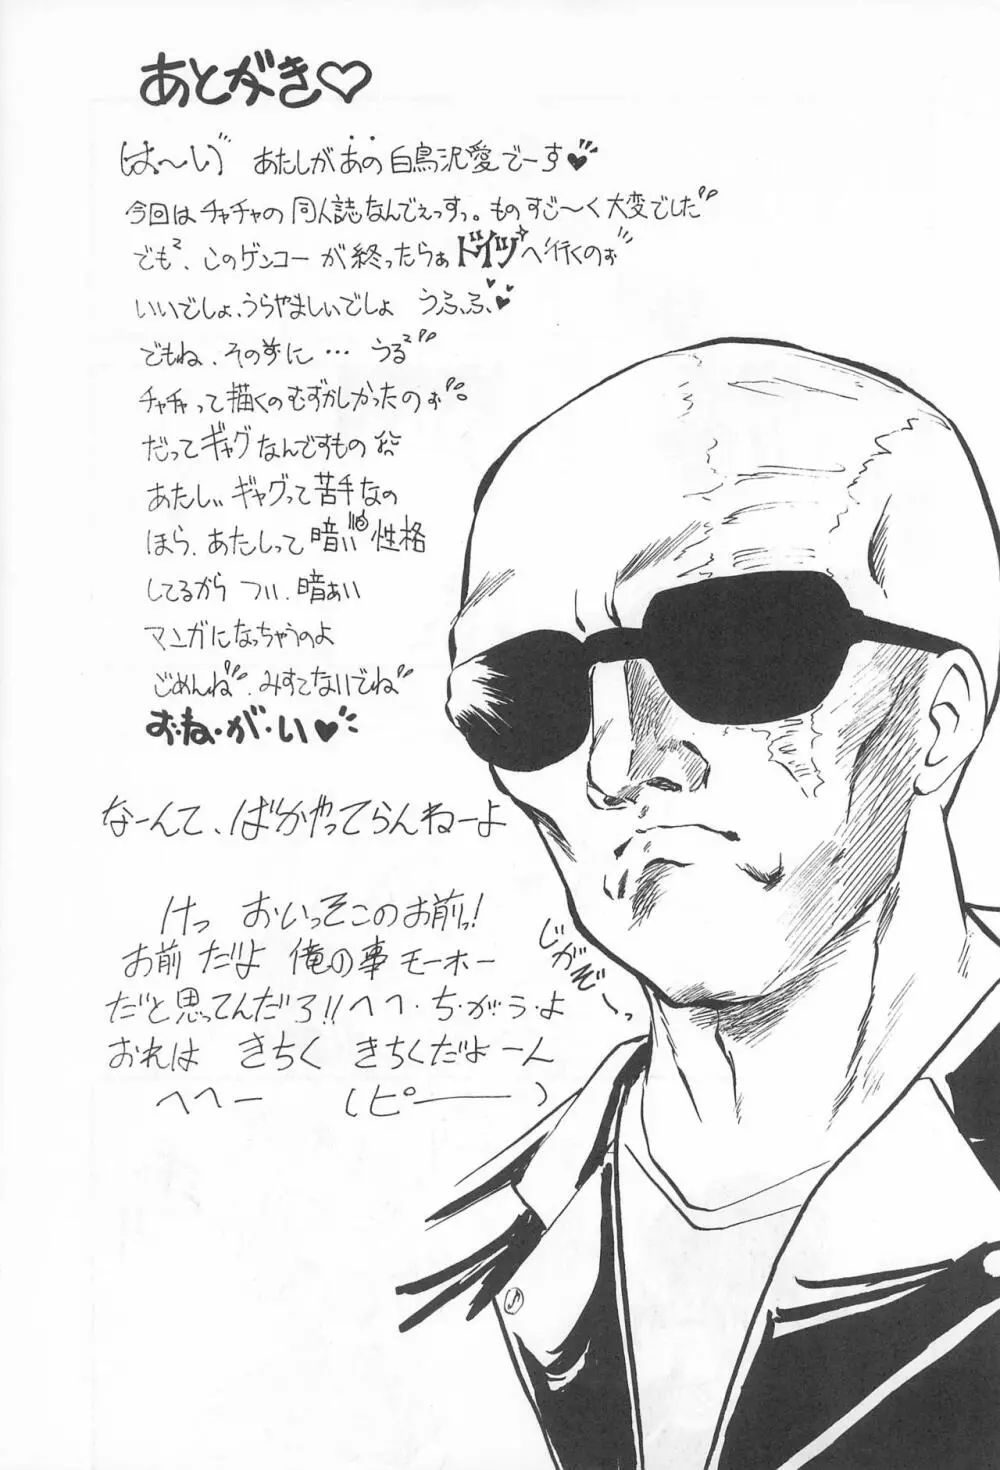 あとがき♡
は〜い゛ あたしがあの白鳥沢愛でーす♥
今回はチャチャの同人誌なんでぇっすっ。ものすご〜く大変でした
でも²、このゲンコーが終ったらぁドイツへ行くのぉ
いいでしょ、うらやましいでしょ うふふ♥
でもね、その前に… うる²
チャチャって描くのむずかしかったのぉ。
だってギャグなんですもの
あたしぃギャグって苦手なの
ほら、あたしって暗い性格
してるから つい、暗ぁい
マンガになっちゃうのよ
ごめんね、みすてないでね
お・ね・が・い♥
なーんて、ばかやってらんねーよ
けっ おいっそこのお前っ!
お前だよ 俺の事モーホー
だと思ってんだろ!!へへ・ち・が・う・よ
おれは きちく きちくだよーん
へへー (ピー――)
じがぞーっ